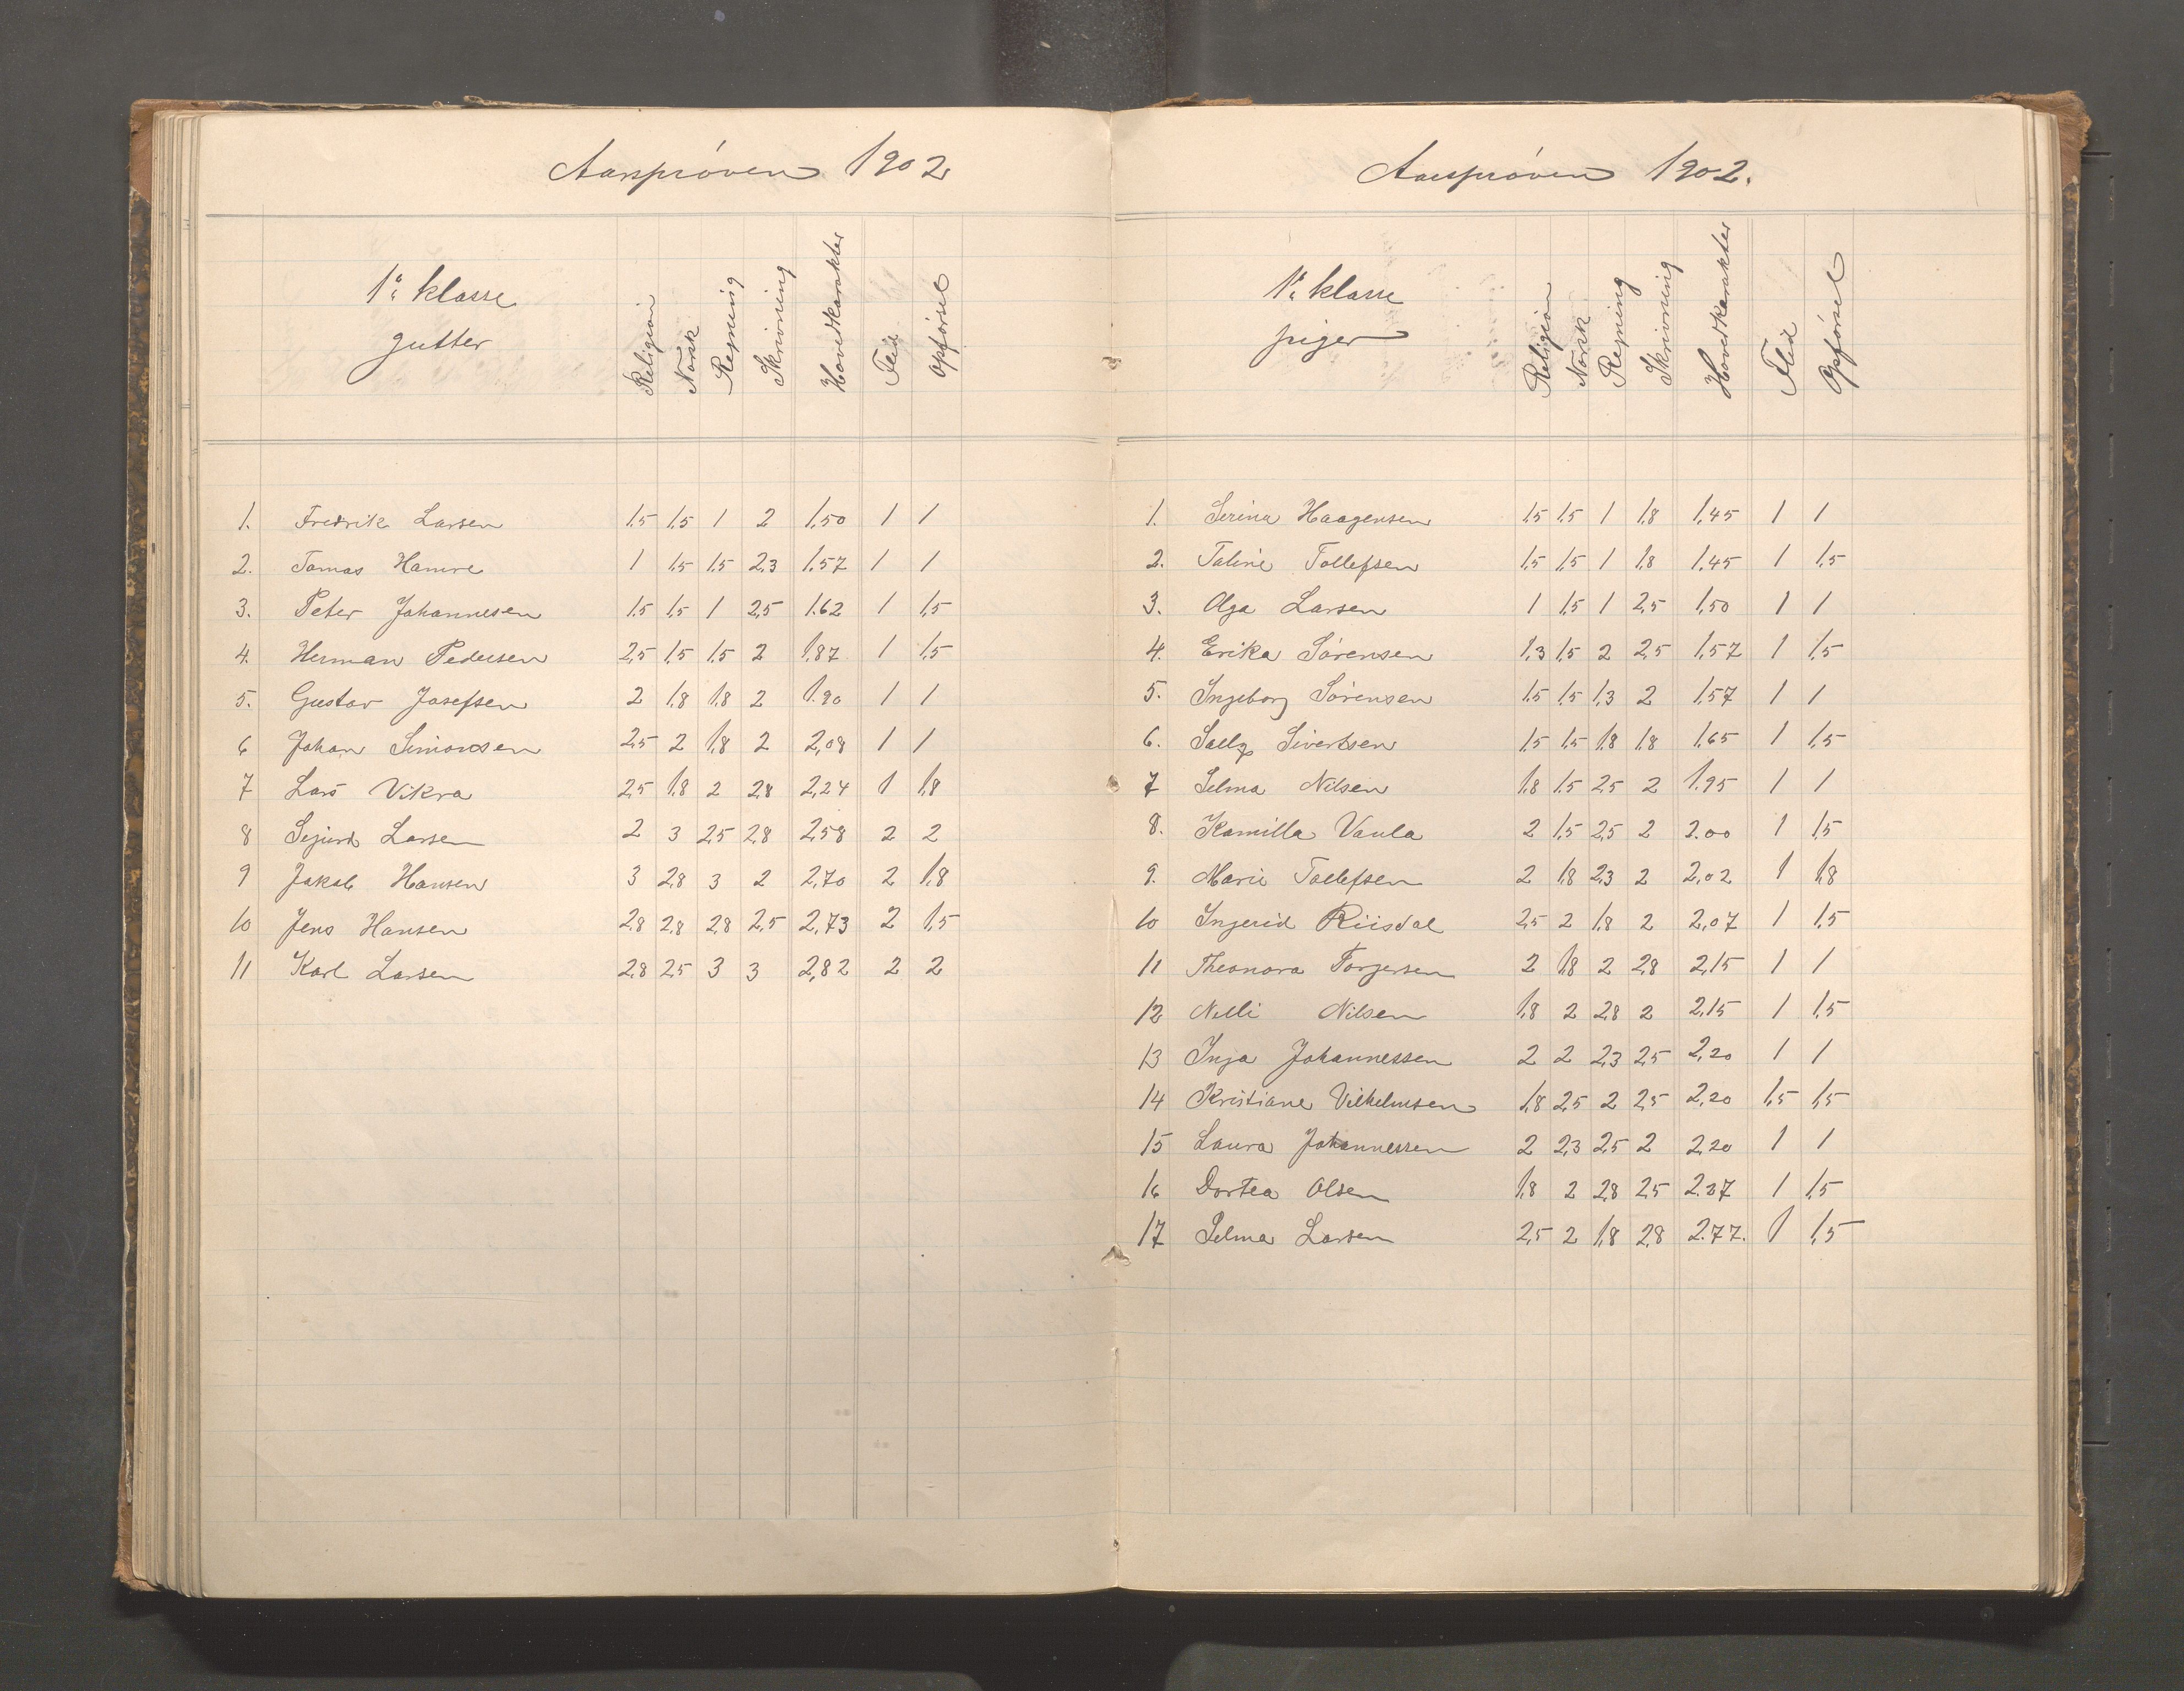 Aarsprøven 1902
1ᵉ klasse
gutter
Religion Norsk Regning Skrivning Hovedkarakter Flid Opførsel
1. Fredrik Larsen 1,5 1,5 1 2 1,50 1 1
2. Tomas Hamre 1 1,5 1,5 2,3 1,57 1 1
3. Peter Johannesen 1,5 1,5 1 2,5 1.62 1 1,5
4. Herman Pedersen 2,5 1,5 1,5 2 1,87 1 1,5
5. Gustav Josefsen 2 1,8 1,8 2 1.90 1 1
6 Johan Simonsen 2,5 2 1,8 2 2,08 1 1
7 Lars Vikra 2,5 1,8 2 2,8 2,24 1 1,8
8 Sigurd Larsen 2 3 2,5 2,8 2,58 2 2
9 Jakob Hansen 3 2,8 3 2 2,70 2 1,8
10 Jens Hansen 2,8 2,8 2,8 2,5 2,73 2 1,5
11 Karl Larsen 2,8 2,5 3 3 2,82 2 2
Aarsprøven 1902.
1ᵉ klasse
piger
Religion Norsk Regning Skrivning Hovedkarakter Flid Opførsel
1. Serina Haagensen 1,5 1,5 1 1,8 1,45 1 1
2. Taline Tollefsen 1,5 1,5 1 1,8 1,45 1 1,5
3. Olga Larsen 1 1,5 1 2,5 1,50 1 1
4. Erika Sørensen 1,3 1,5 2 2,5 1,57 1 1,5
5. Ingeborg Sørensen 1,5 1,5 1,3 2 1,57 1 1
6. Sivertsen 1,5 1,5 1,8 1,8 1,65 1 1,5
7 Selma Nilsen 1,8 1,5 2,5 2 1.95 1 1
8. Kamilla Vaula 2 1,5 2,5 2 2.00 1 1,5
9. Marie Tollefsen 2 1,8 2,3 2 2,02 1 1,8
10 Ingerid Riisdal 2,5 2 1,8 2 2,07 1 1,5
11 Theonora Torgersen 2 1,8 2 2,8 2,15 1 1
12 Nelli Nilsen 1,8 2 2,8 2 2,15 1 1,5
13 Inga Johannessen 2 2 2,3 2,5 2,20 1 1
14 Kristiane Vilhelmsen 1,8 2,5 2 2,5 2,20 1,5 1,5
15 Laura Johannessen 2 2,3 2,5 2 2,20 1 1
16 Dortea Olsen 1,8 2 2,8 2,5 2.27 1 1,5
17 Selma Larsen 2,5 2 1,8 2,8 2.77. 1 1,5